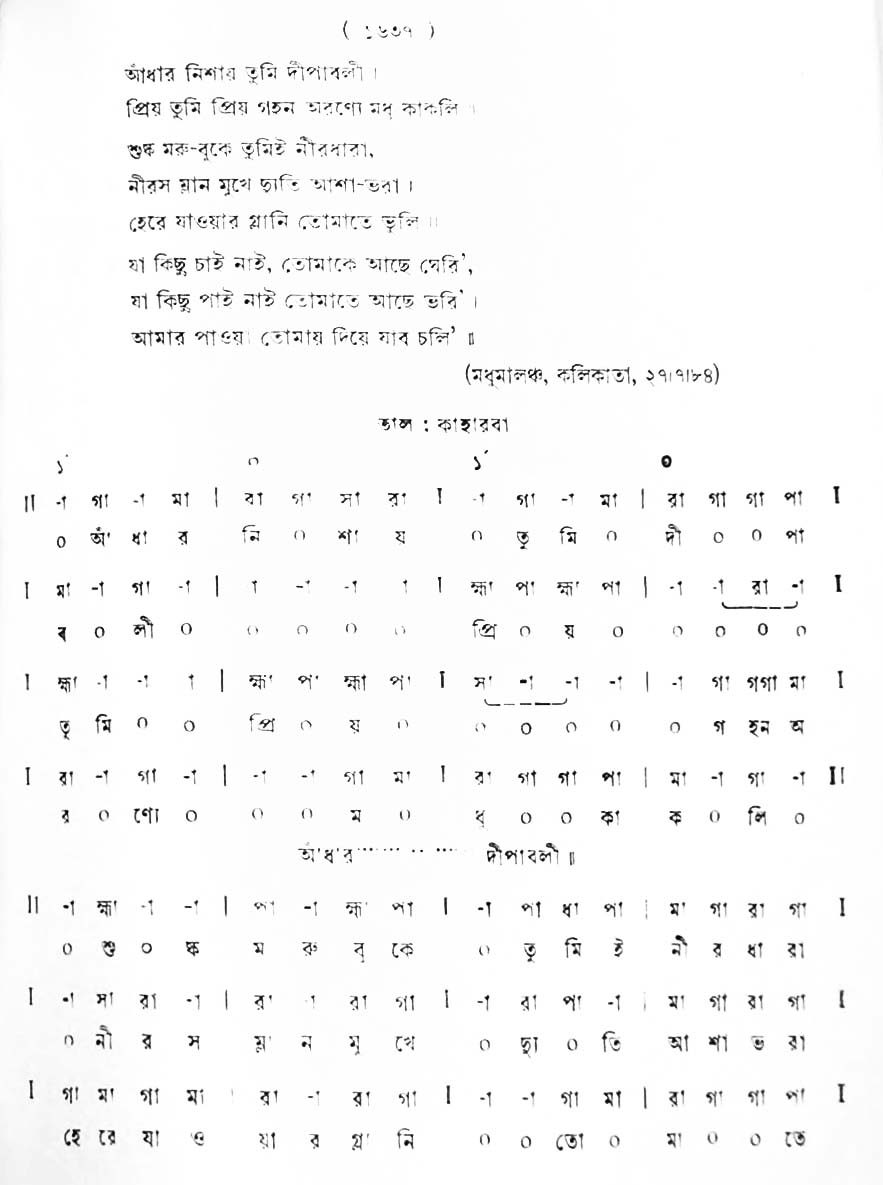 ( ১৬৩৭ )
আঁধার নিশায় তুমি দীপাবলী ।
প্রিয় তুমি প্রিয় গহন অরণ্যে মধু কাকলি ।
শুষ্ক মরু-বুকে তুমিই নীরধারা,
নীরস ম্লান মুখে দ্যুতি আশা-ভরা ।
হেরে যাওয়ার গ্লানি তোমাতে ভুলি ॥
যা কিছু চাই নাই, তোমাকে আছে ঘেরি’,
যা কিছু পাই নাই তোমাতে আছে ভরি’ ।
আমার পাওয়া তোমায় দিয়ে যাব চলি’ ॥
(মধুমালঞ্চ, কলিকাতা, ২৭।৭।৮৪)
তাল : কাহারবা
১´ ০ ১´ ০
II -া গা -া মা | রা গা সা রা I -া গা -া মা | রা গা গা পা I
০ আঁ ধা র নি ০ শা য় ০ তু মি ০ দী ০ ০ পা
I মা -া গা -া | া -া -া া I হ্মা পা হ্মা পা | -া -া রা -া I
ব ০ লী ০ ০ ০ ০ ০ প্রি ০ য় ০ ০ ০ ০ ০
I হ্মা -া -া া | হ্মা পা হ্মা পা I সা -া -া -া | -া গা গগা মা I
তু মি ০ ০ প্রি ০ য় ০ ০ ০ ০ ০ ০ গ হন অ
I রা -া গা -া | -া -া গা মা I রা গা গা পা | মা -া গা -া II
র ০ ণ্যে ০ ০ ০ ম ০ ধু ০ ০ কা ক ০ লি ০
আঁধার ......... দীপাবলী ॥
II -া হ্মা -া -া | পা -া হ্মা পা I -া পা ধা পা | মা গা রা গা I
০ শু ০ ষ্ক ম রু বু কে ০ তু মি ই নী র ধা রা
I -া সা রা -া | রা া রা গা I -া রা পা -া | মা গা রা গা I
০ নী র স ম্লা ন মু খে ০ দ্যু ০ তি আ শা ভ রা
I গা মা গা মা | রা -া রা গা I -া -া গা মা | রা গা গা পা I
হে রে যা ও য়া র গ্লা নি ০ ০ তো ০ মা ০ ০ তে